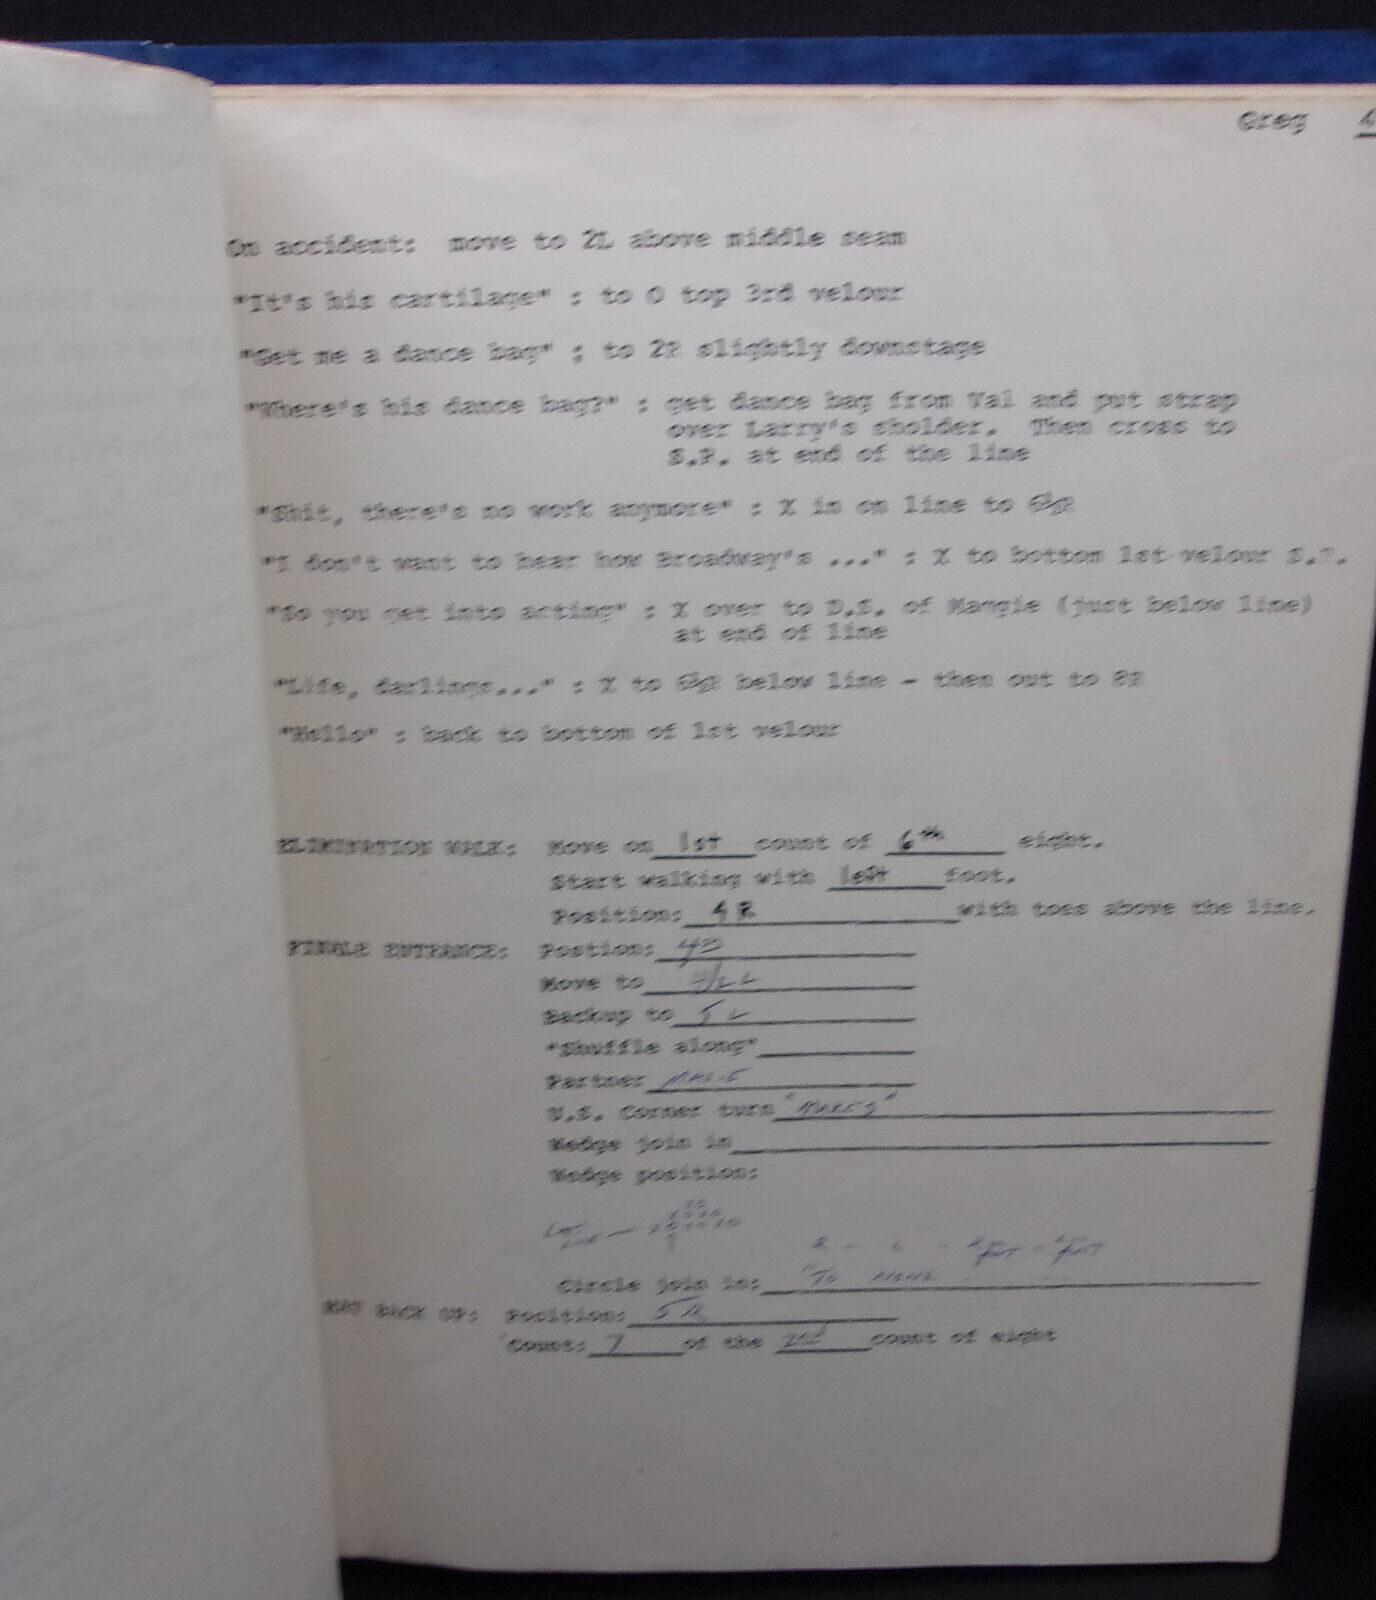 Greg 4
On accident: move to 2L above middle seam
"It's his cartilage" : to 0 top 3rd velour
"Get me a dance bag" : to 2R slightly downstage
"Where's his dance bag?" : get dance bag from Val and put strap
over Larry's sholder. Then cross to
S.R. at end of the line
"Shit, there's no work anymore" : X in on line to 6½R
"I don't want to hear how Broadway's ..." : X to bottom 1st velour S.R.
"So you get into acting" : X over to D.S. of Maggie (just below line)
at end of line
"Life, darlings..." : X to 6½R below line - then out to 8R
"Hello" : back to bottom of 1st velour
ELIMINATION WALK: Move on 1st count of 6th eight.
Start walking with left foot.
Position: 4R with toes above the line.
FINALE ENTRANCE: Postion:
Move to
Backup to 5L
"Shuffle along"
Partner
U.S. Corner turn
Wedge join in
Wedge position:
R - L -
Circle join in: "To
HAT BACK UP: Position: 5R
Count: 7 of the 2nd count of eight